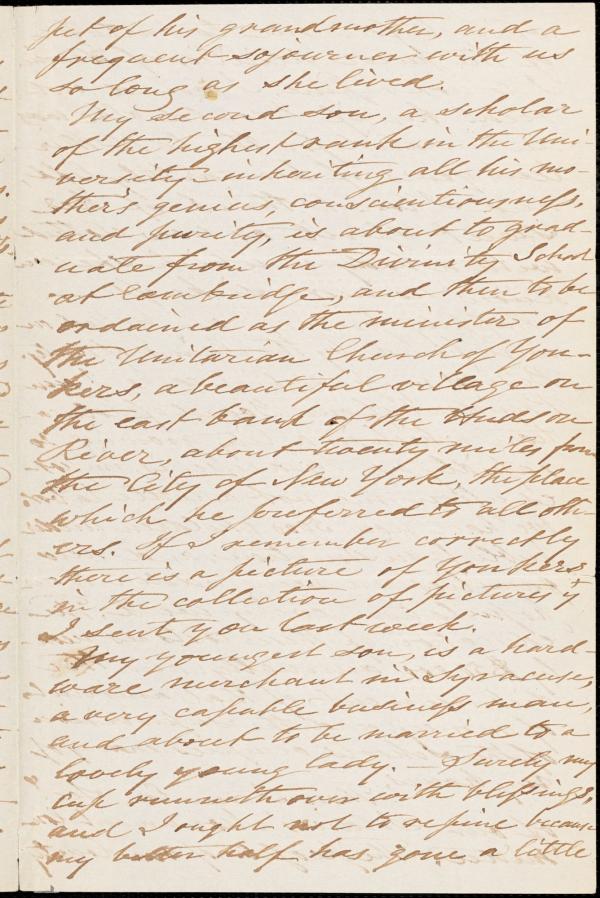 pet of his grandmother, and a
frequent sojourner with us
so long as she lived.
My second son, a scholar
of the highest rank in the Uni-
versity - inheriting all his mo-
ther's genius, conscientiousness,
and purity, is about to grad-
uate from the Divinity School
at Cambridge, and then to be
ordained as the minister of
the Unitarian Church of Yon-
kers, a beautiful village on
the east bank of the Hudson
River, about twenty miles from
the City of New York, the place
which he preferred to all oth-
ers. If I remember correctly
there is a picture of Yonkers
in the collection of pictures
I sent you last week.
My youngest son, is a hard-
ware merchant in Syracuse,
a very capable business man,
and about to be married to a
lovely young lady. - Surely my
cup runneth over with blessings,
and I ought not to repine because
my better half has gone a little